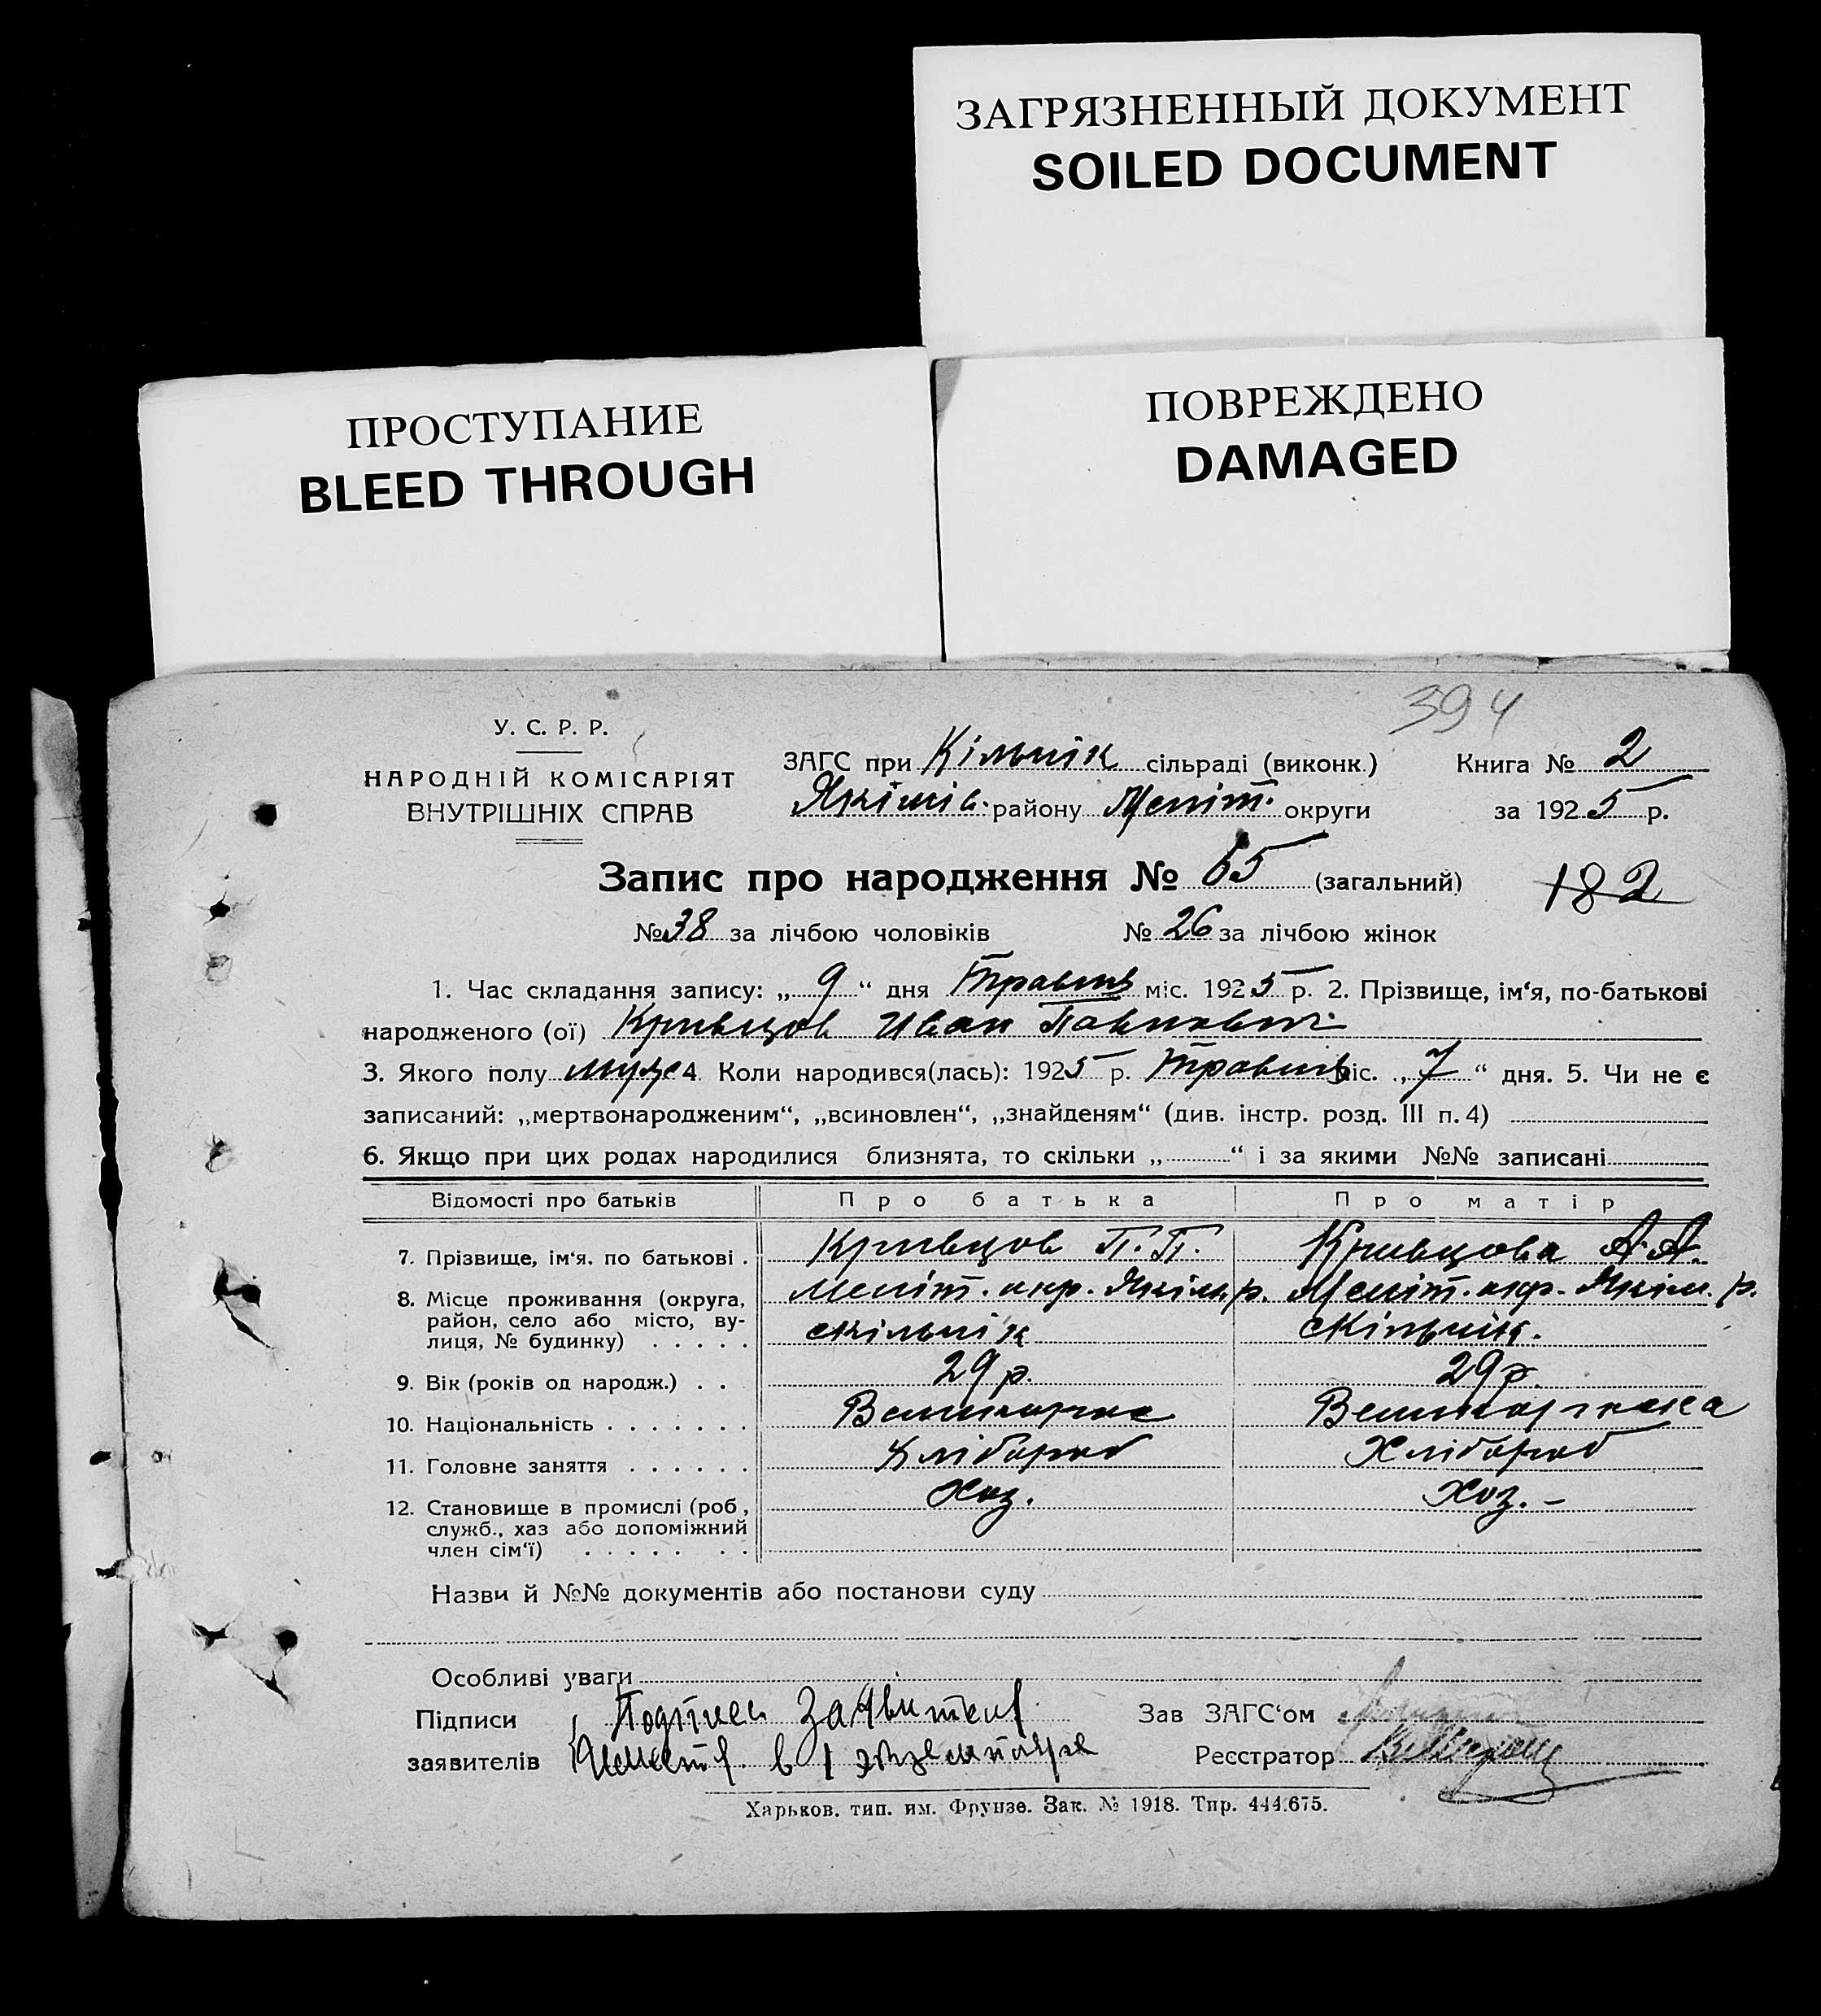 ЗАГРЯЗНЕННЫЙ ДОКУМЕНТ
SOILED DOCUMENT
ПРОСТУПАНИЕ
BLEED THROUGH
ПОВРЕЖДЕНО
DAMAGED
394
У. С. Р. Р.
НАРОДНІЙ КОМІСАРІЯТ
ВНУТРІШНІХ СПРАВ
ЗАГС при Кільнік сільраді (виконк.)
Якімів. району Меліт. округи
Книга № 2
за 1925 р.
Запис про народження № 65 (загальний)
182
№ 38 за лічбою чоловіків № 26 за лічбою жінок
1. Час складання запису: „ 9 “ дня Травня міс. 1925 р. 2. Прізвище, ім‘я, по-батькові
народженого (ої) Кривцов Иван Павлович
3. Якого полу муж 4. Коли народився(лась): 1925 р. Травня міс. „ 7 “ дня. 5. Чи не є
записаний: „мертвонародженим“, „всиновлен“, „знайденям“ (див. інстр. розд. III п. 4)
6. Якщо при цих родах народилися близнята, то скільки „ “ і за якими №№ записані
Відомості про батьків Про батька Про матір
7. Прізвище, ім‘я, по батькові . Кривцов П. П. Кривцова А. А.
8. Місце проживання (округа, Меліт. окр. Якім. р. Меліт. окр. Якім. р.
район, село або місто, ву-
лиця, № будинку) . . . . . с Кільнік с Кільнік.
9. Вік (років од народж.) . . 29 р. 29 р.
10. Національність . . . . . . .
11. Головне заняття . . . . . . Хлібороб Хлібороб
12. Становище в промислі (роб., Хоз. Хоз. –
служб., хаз або допоміжний
член сім‘ї) . . . . . . .
Назви й №№ документів або постанови суду
Особливі уваги
Підписи Подписи Заявителя Зав ЗАГС‘ом
заявителів в 1 экземпляре Реєстратор
Харьков. тип. им. Фрунзе. Зак. № 1918. Тир. 444.675.